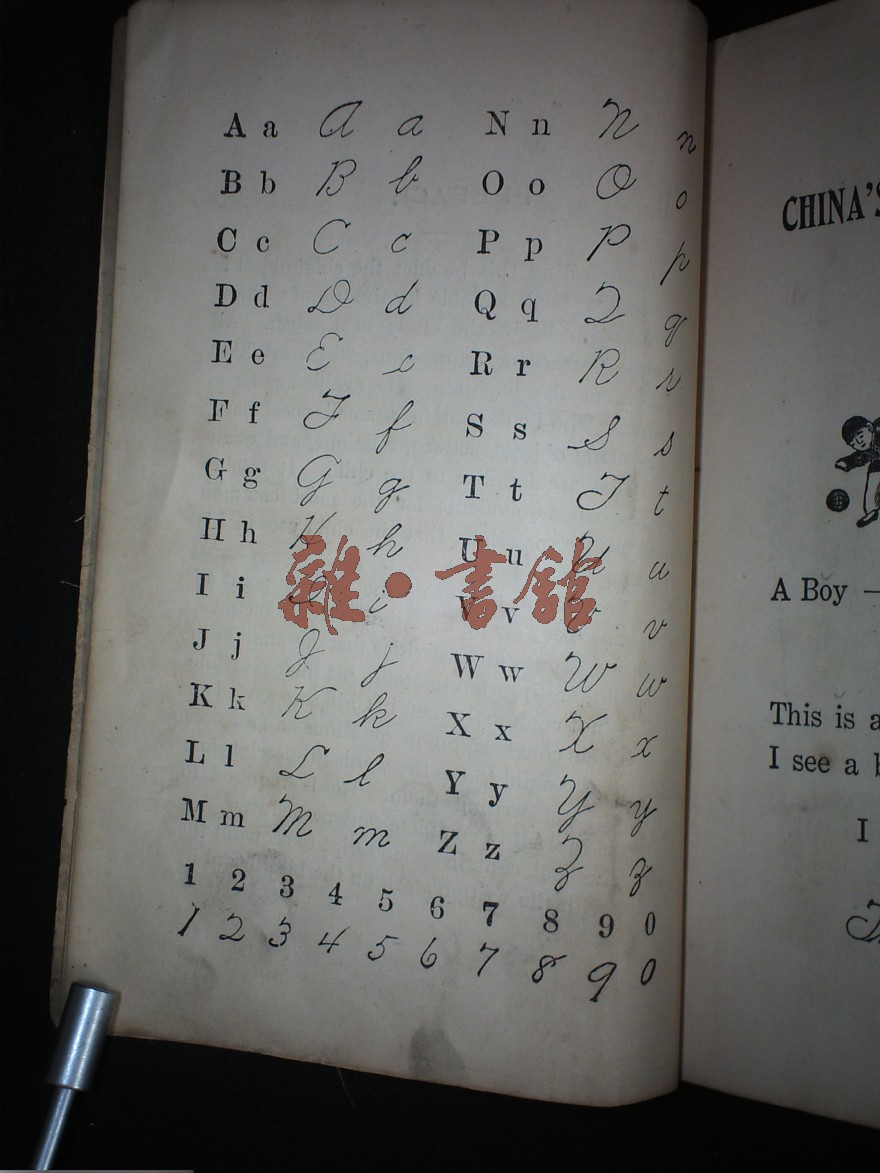 A a A a N n N n
B b B b O o O o
C c C c P p P p
D d D d Q q Q q
E e E e R r R r
F f F f S s S s
G g G g T t T t
H h H h U u U u
I i I i V v V v
J j J j W w W w
K k K k X x X x
L l L l Y y Y y
M m M m Z z Z z
1 2 3 4 5 6 7 8 9 0
1 2 3 4 5 6 7 8 9 0
雜·書館
CHINA'S
A Boy —
This is a
I see a b
I